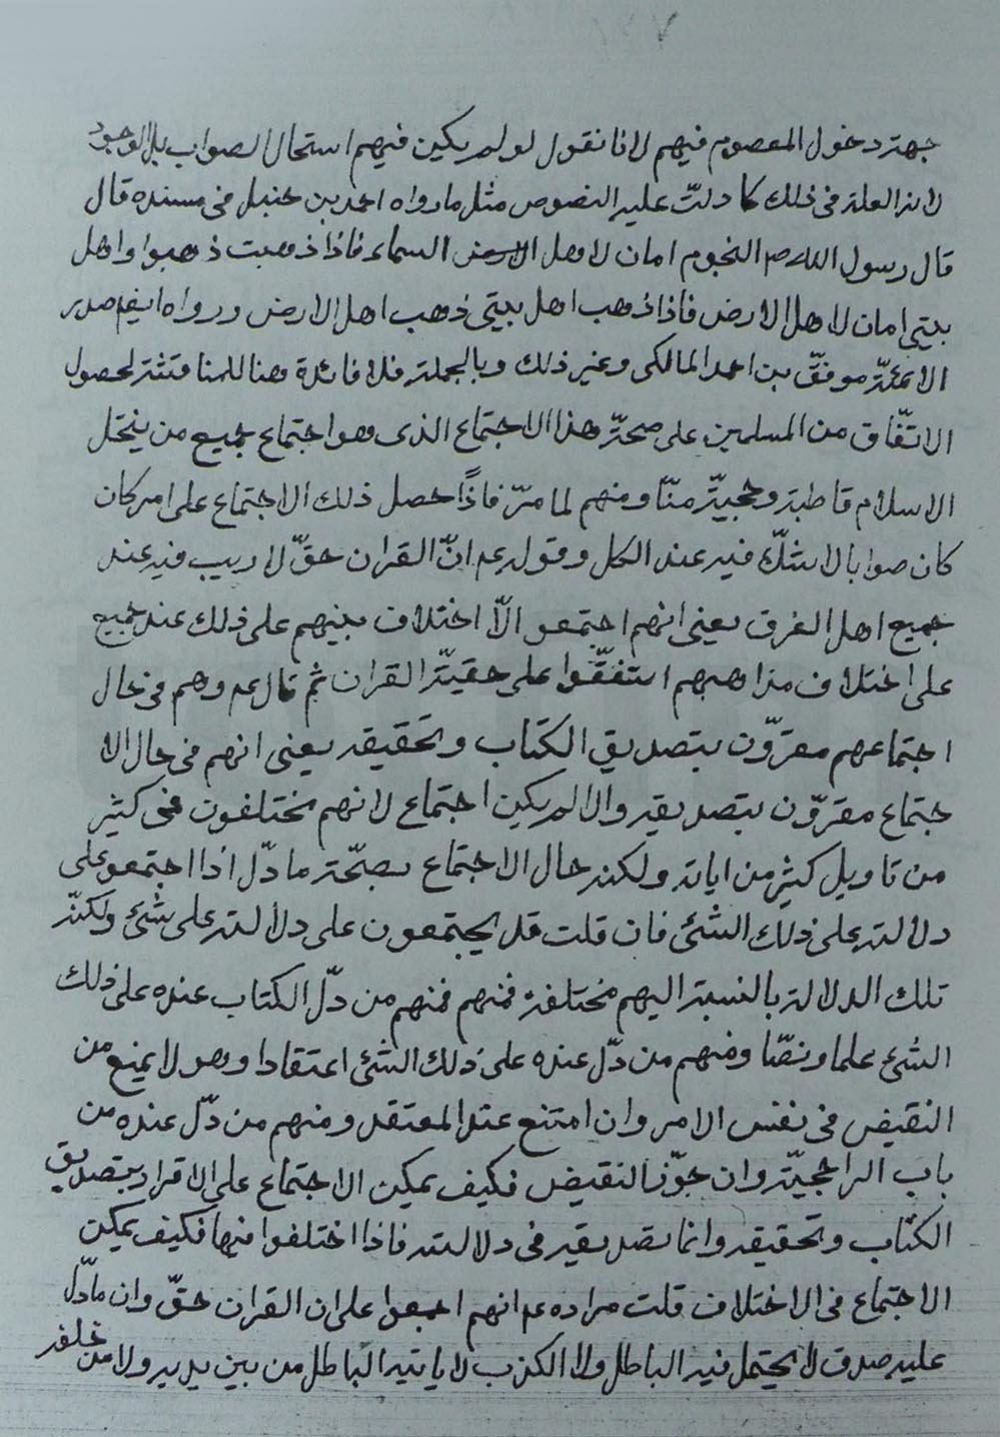 جهة دخول المعصوم فيهم لانا نقول لو لم يكن فيهم استحال الصواب بل الوجود
لانه العلة فى ذلك كما دلّت عليه النصوص مثل ما رواه احمد بن حنبل فى مسنده قال
قال رسول الله ص النجوم امان لاهل السماء فاذا ذهبت ذهبوا واهل
بيتى امان لاهل الارض فاذا ذهب اهل بيتى ذهب اهل الارض ورواه ايضا صدر
الائمّة موفّق بن احمد المالكى وغير ذلك وبالجملة فلا فائدة هنا للمناقشة لحصول
الاتّفاق من المسلمين على صحّة هذا الاجتماع الذى هو اجتماع جميع من ينتحل
الاسلام قاطبة وحجيّة منّا ومنهم لما مرّ فاذًا حصل ذلك الاجتماع على امر كان
كان صوابا لا شكّ فيه عند الكل وقوله ع انّ القران حقّ لا ريب فيه عند
جميع اهل الفرق يعنى انهم اجتمعو الّا اختلاف بينهم على ذلك عند جميع
على اختلاف مذاهبهم اتفقّوا على حقيّة القران ثم قال ع وهم فى حال
اجتماعهم مقرّون بتصديق الكتاب وتحقيقه يعنى انهم فى حال الا
جتماع مقرّون بتصديقه والا لم يكن اجتماع لانهم مختلفون فى كثير
من تاويل كثير من اياته ولكنه حال الاجتماع بصحّة ما دّل اذا اجتمعو على
دلالته على ذلك الشئ فان قلت قد يجتمعون على دلالته على شئ ولكنّ
تلك الدلالة بالنسبة اليهم مختلفة فمنهم فمنهم من دلّ الكتاب عنده على ذلك
الشئ علما ونصّا ومنهم من دلّ عنده على ذلك الشئ اعتقادا وهو لا يمنع من
النقيض فى نفس الامر وان امتنع عند المعتقد ومنهم من دلّ عنده من
باب الراجحيّة وان جوّز النقيض فكيف يمكن الاجتماع على الاقرار بتصديق
الكتاب وتحقيقه وانما تصديقه فى دلالته فاذا اختلفوا فيها فكيف يمكن
الاجتماع فى الاختلاف قلت مراده ع انهم اجمعوا على ان القران حقّ وان ما دّل
عليه صدق لا يحتمل فيه الباطل ولا الكذب لا ياتيه الباطل من بين يديه ولا من خلفه